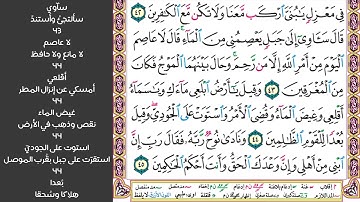 سآوي
سألتجئ وأستند
٤٣
لا عاصم
لا مانع ولا حافظ
٤٤
أقلعي
أمسكي عن إنزال المطر
٤٤
غيض الماء
نقص وذهب في الأرض
٤٤
استوت على الجودي
استقرت على جبل بقرب الموصل
٤٤
بُعدا
هلاكا وسُحقا
فِي مَعْزِلٍ يَٰبُنَيَّ ٱرْكَب مَّعَنَا وَلَا تَكُن مَّعَ ٱلْكَٰفِرِينَ ٤٢
قَالَ سَـَٔاوِىٓ إِلَىٰ جَبَلٍ يَعْصِمُنِى مِنَ ٱلْمَآءِ قَالَ لَا عَاصِمَ
ٱلْيَوْمَ مِنْ أَمْرِ ٱللَّهِ إِلَّا مَن رَّحِمَ وَحَالَ بَيْنَهُمَا ٱلْمَوْجُ فَكَانَ
مِنَ ٱلْمُغْرَقِينَ ٤٣ وَقِيلَ يَٰٓأَرْضُ ٱبْلَعِى مَآءَكِ وَيَٰسَمَآءُ
أَقْلِعِى وَغِيضَ ٱلْمَآءُ وَقُضِىَ ٱلْأَمْرُ وَٱسْتَوَتْ عَلَى ٱلْجُودِىِّ وَقِيلَ
بُعْدًا لِّلْقَوْمِ ٱلظَّٰلِمِينَ ٤٤ وَنَادَىٰ نُوحٌ رَّبَّهُۥ فَقَالَ رَبِّ إِنَّ
ٱبْنِى مِنْ أَهْلِى وَإِنَّ وَعْدَكَ ٱلْحَقُّ وَأَنتَ أَحْكَمُ ٱلْحَٰكِمِينَ ٤٥